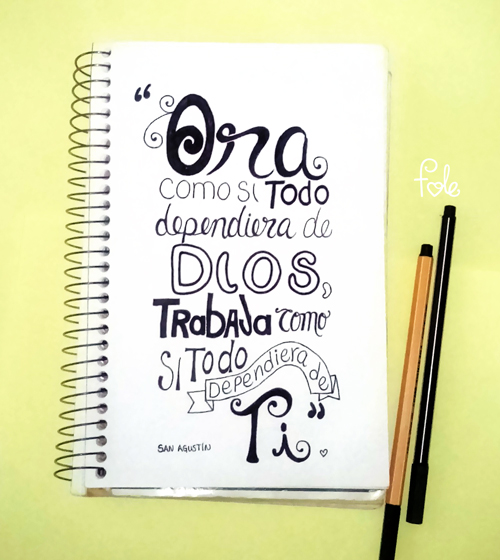 “Ora
como si Todo
dependiera de
DIOS,
TRABAJA como
Si Todo
Dependiera de
Ti”
SAN AGUSTÍN
fole